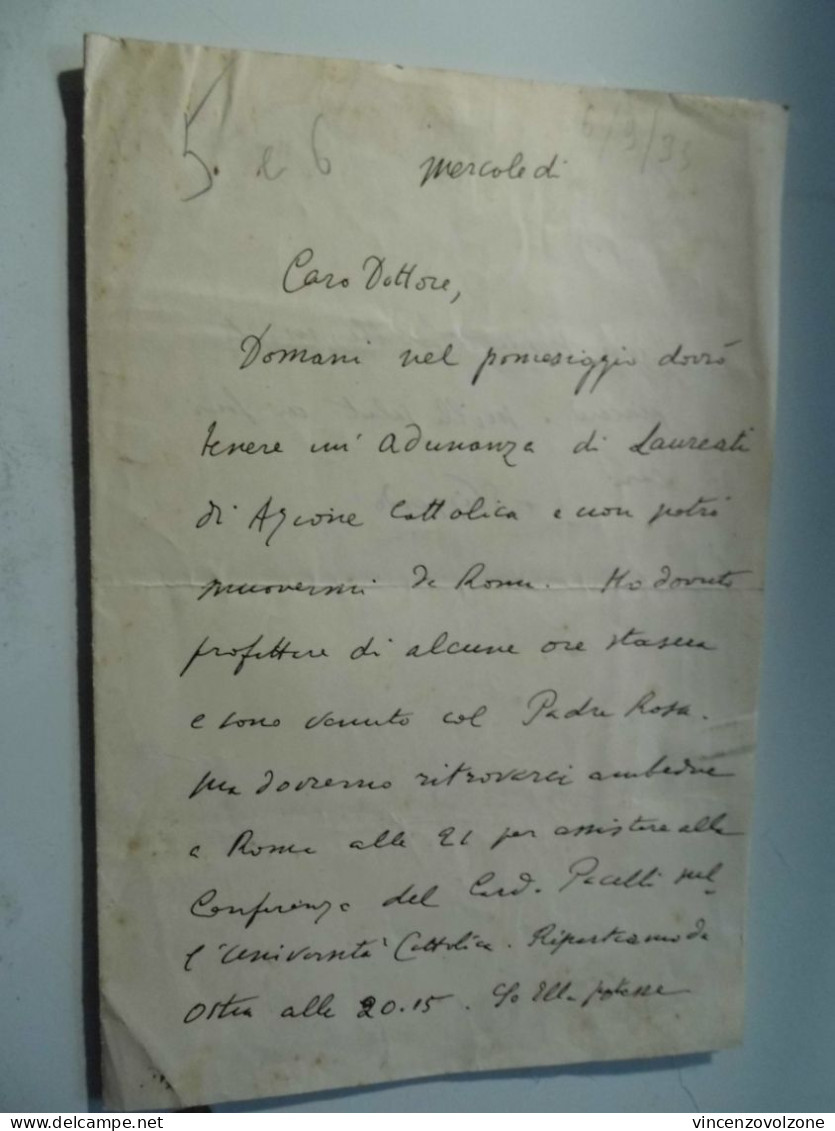 5 e 6
mercoledì
Caro Dottore,
Domani nel pomeriggio dovrò
tenere un' adunanza di Laureati
di Azione Cattolica e non potrò
muovermi da Roma. Ho dovuto
profittare di alcune ore stasera
e sono venuto col Padre Rosa.
ma dovremo ritrovarci ambedue
a Roma alle 21 per assistere alla
Conferenza del Card. Pacelli nel-
l'Università Cattolica. Ripartiamo da
Ostia alle 20.15. Se Ella potesse
vincenzovolzone